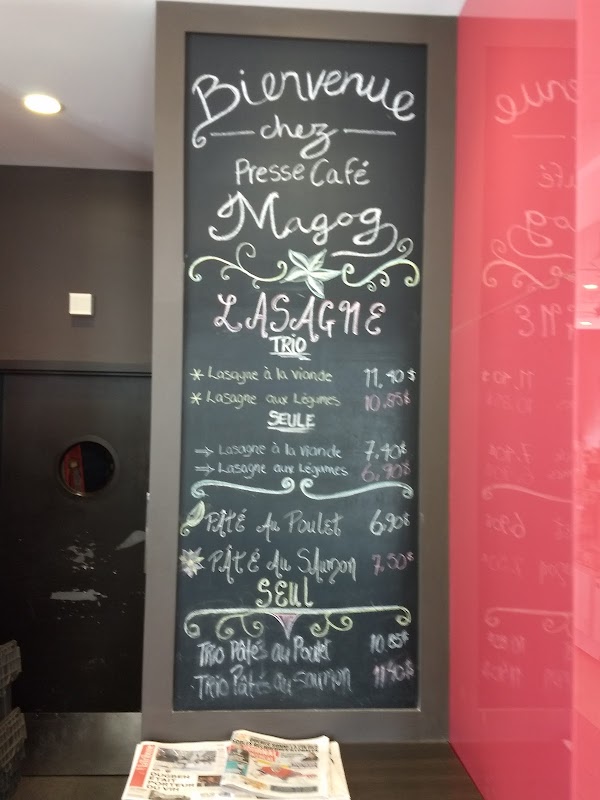 Bienvenue
chez
Presse Café
Magog
LASAGNE
TRIO
* Lasagne à la viande 11,40$
* Lasagne aux Légumes 10,85$
SEULE
→ Lasagne à la viande 7,40$
→ Lasagne aux Légumes 6,90$
PÂTÉ AU POULET 6,90$
PÂTÉ AU SAUMON 7,50$
SEUL
Trio Pâtés au Poulet 10,85$
TRIO Pâtés au saumon 11,40$
OUGREN
ÉTAIT
PORTEUR
DU VIH